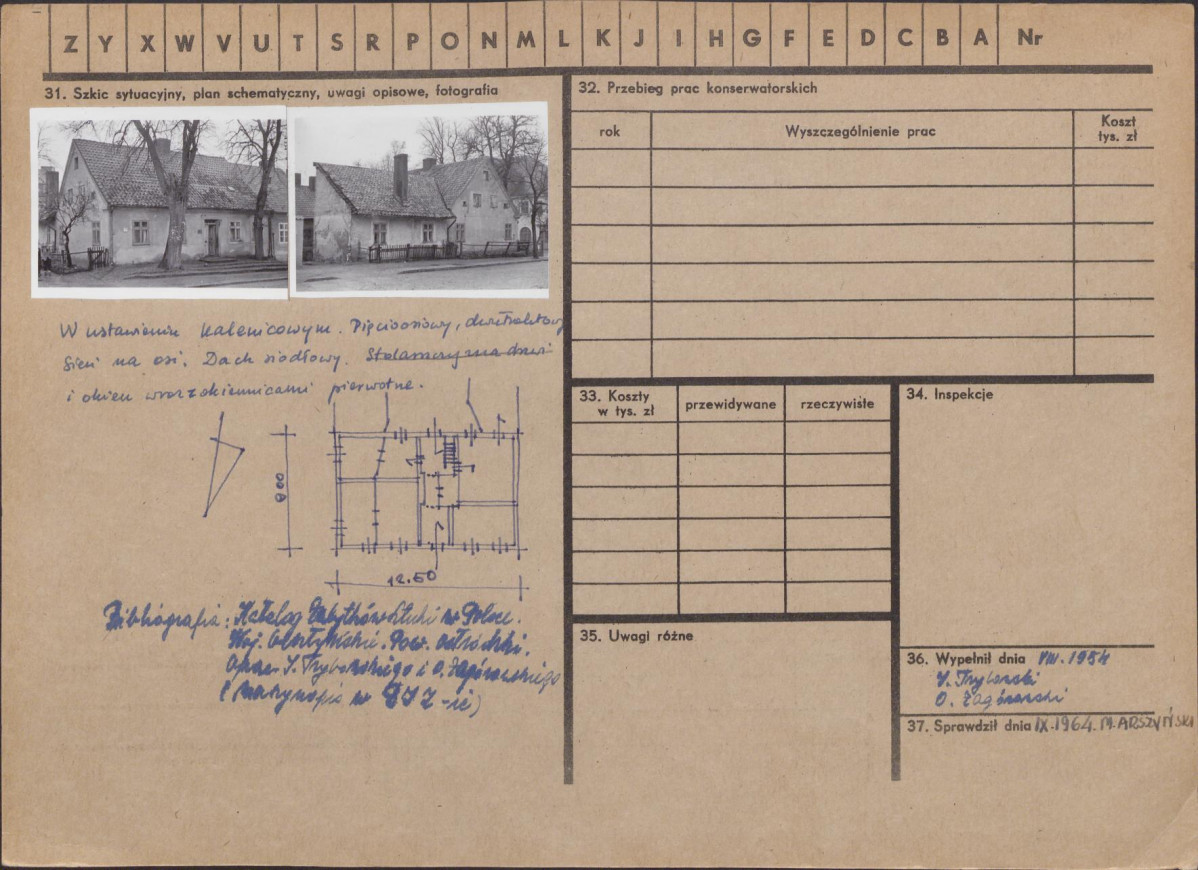 Z Y X W V U T S R P O N M L K J I H G F E D C B A Nr
31. Szkic sytuacyjny, plan schematyczny, uwagi opisowe, fotografia
W ustawieniu kalenicowym. Pięcioosiowy, dwutraktowy
Sień na osi. Dach siodłowy. Stolarszczyzna drzwi
i okien wraz z okiennicami pierwotne.
800
12.50
Bibliografia: Katalog Zabytków Sztuki w Polsce.
Woj. Olsztyńskie. Pow. ostródzki.
Oprac. J. Trybowskiego i O. Zagórowskiego
(maszynopis w ODZ-ie)
32. Przebieg prac konserwatorskich
rok
Wyszczególnienie prac
Koszt
tys. zł
33. Koszty
w tys. zł
przewidywane
rzeczywiste
34. Inspekcje
35. Uwagi różne
36. Wypełnił dnia VIII.1954
J. Trybowski
O. Zagórowski
37. Sprawdził dnia IX.1964. M. ARSZYŃSKI